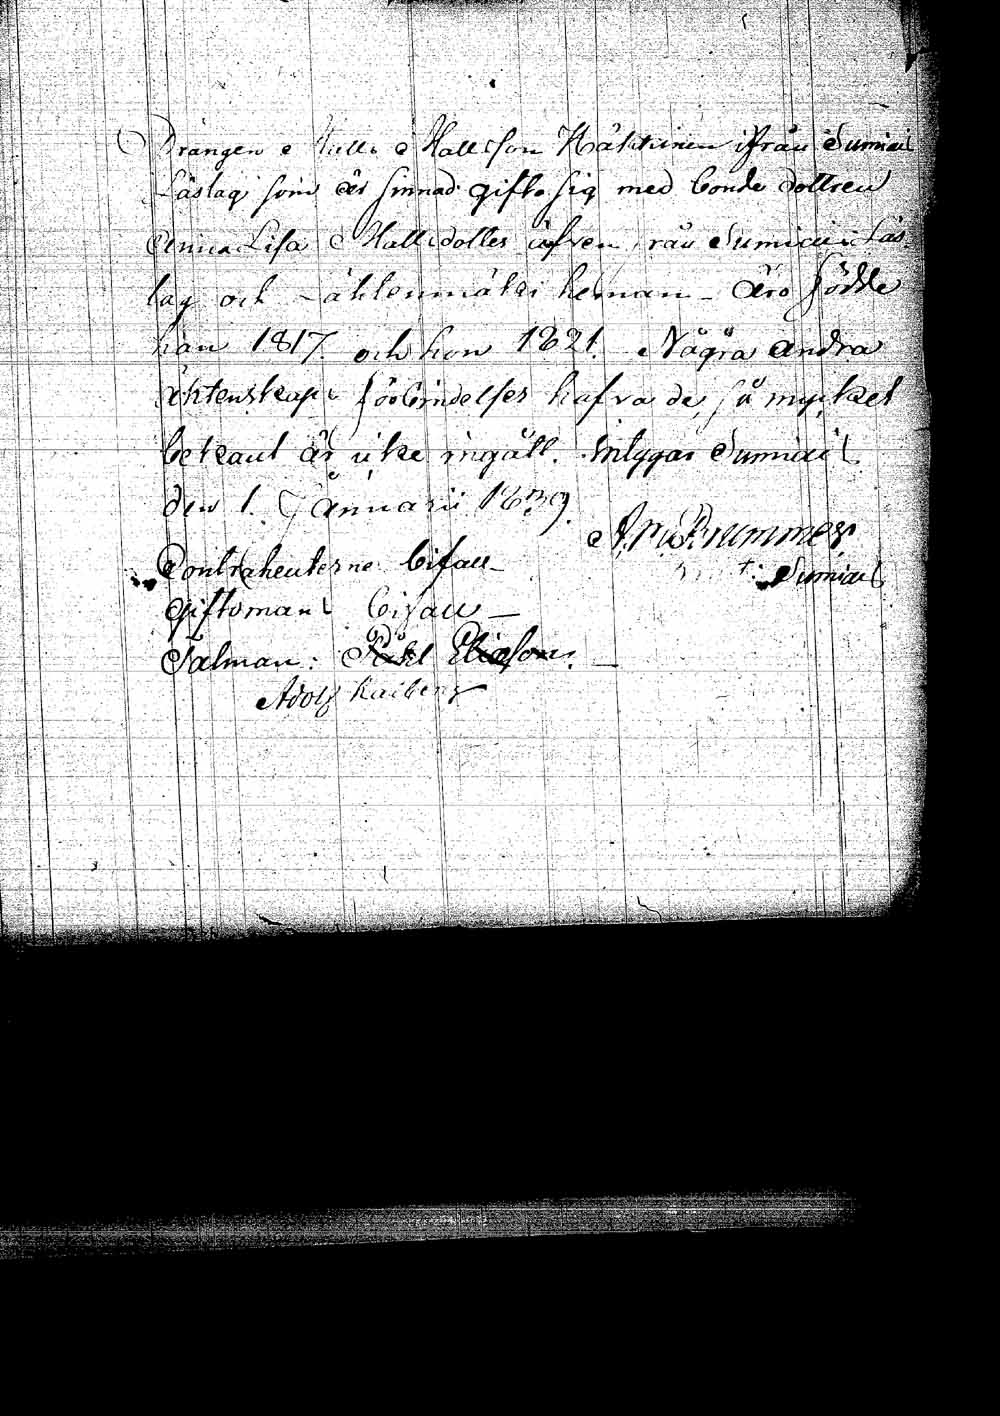 Drängen Kalle Mattsson Häkkinen ifrån Sumiais
Läslag som är sinnad gifta sig med bonde dottren
Anna Lisa Mattsdotter äfven från Sumiais Läs-
lag och hemman - Äro födde
han 1817. och hon 1821. Några andra
äktenskaps förbindelser hafva de, så mycket
bekant är icke ingått. Intygar Sumiais
den 1. Januarii 1839.
Brummer
Sumiais
Contrahenterne bifall -
giftomans bifall -
Talman:
Adolf